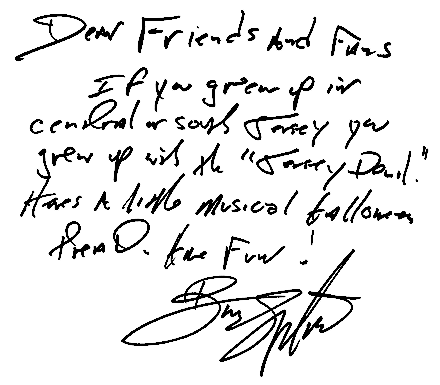 Dear Friends and Fans
If you grew up in
central or south Jersey you
grew up with the "Jersey Devil."
Here's a little musical Halloween
treat. Have Fun!
Bruce Springsteen